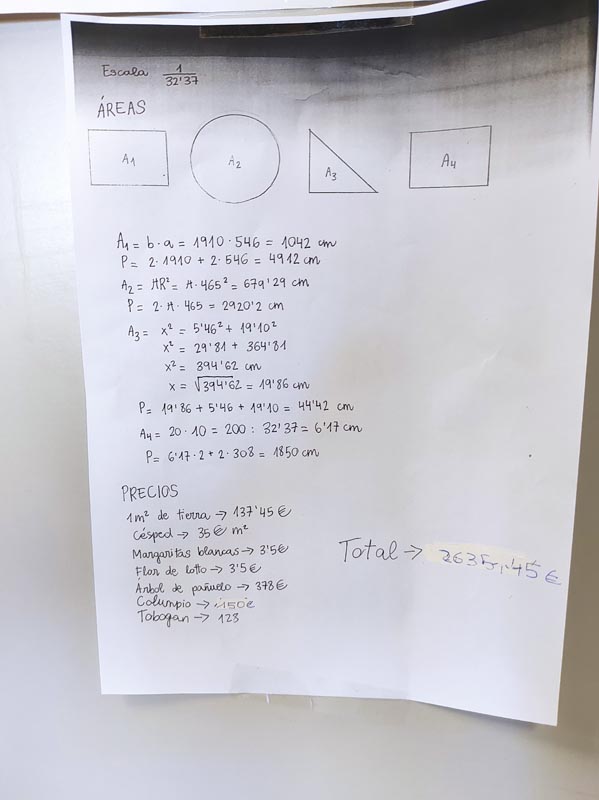 Escala 1/32'37
ÁREAS
A1 A2 A3 A4
A1 = b · a = 1910 · 546 = 1042 cm
P = 2 · 1910 + 2 · 546 = 4912 cm
A2 = πR² = π · 465² = 679'29 cm
P = 2 · π · 465 = 2920'2 cm
A3 = x² = 5'46² + 19'10²
x² = 29'81 + 364'81
x² = 394'62 cm
x = √394'62 = 19'86 cm
P = 19'86 + 5'46 + 19'10 = 44'42 cm
A4 = 20 · 10 = 200 : 32'37 = 6'17 cm
P = 6'17 · 2 + 2 · 308 = 1850 cm
PRECIOS
1m² de tierra → 137'45€
Césped → 35€ m²
Margaritas blancas → 3'5€
Flor de lotto → 3'5€
Árbol de pañuelo → 378€
Columpio → 150€
Tobogan → 128
Total → 2635,45€